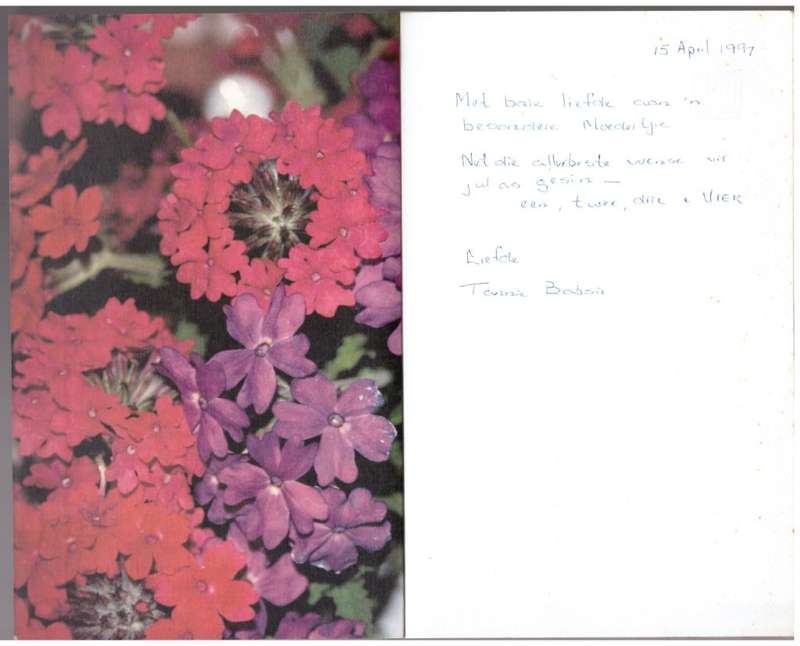 15 April 1997
Met baie liefde aan 'n
besondere Moedertjie
Net die allerbeste wense vir
jul as gesin —
een, twee, drie & VIER
Liefde
Tannie Babsie